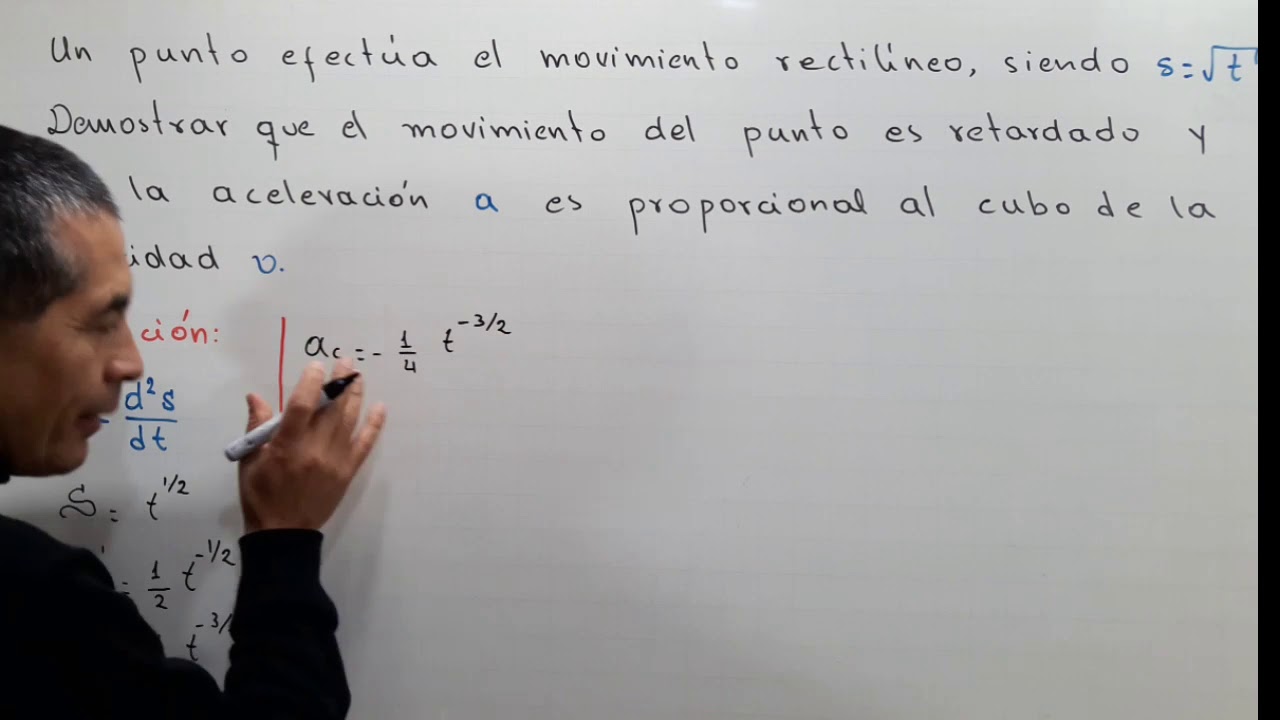 Un punto efectúa el movimiento rectilíneo, siendo s=√t
Demostrar que el movimiento del punto es retardado y
la aceleración a es proporcional al cubo de la
idad v.
ción:
a_c = - 1/4 t^{-3/2}
d²s/dt
S = t^{1/2}
' = 1/2 t^{-1/2}
t^{-3/